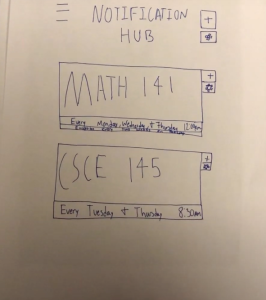 NOTIFICATION
HUB
MATH 141
Every Monday, Wednesday, + Thursday 12:00pm
CSCE 145
Every Tuesday + Thursday 8:30am